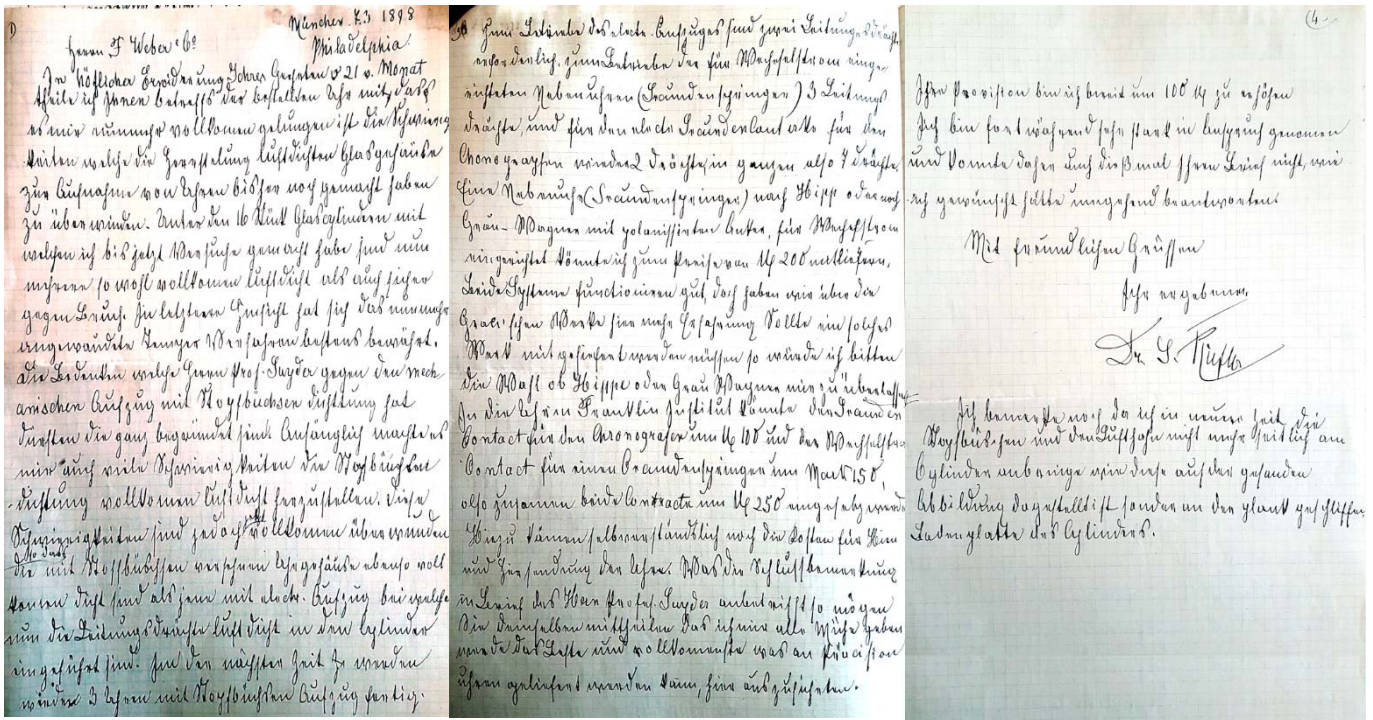 1)
München 7.3 1898
Herrn F Weber & Co
Philadelphia.
In höflicher Erwiderung Ihres Geehrten v 21 v. Monat
theile ich Ihnen betreffs der bestellten Uhr mit, dass
es mir nunmehr vollkommen gelungen ist die Schwierig
keiten welche die Herrstelung luftdichten Glasgehäuse
zur Aufnahme von Uhren bisher noch gemacht haben
zu überwinden. Unter den 16 Stück Glascylindern mit
welchen ich bis jetzt Versuche gemacht habe sind nun
mehrere so wohl vollkommen luftdicht als auch sicher
gegen Bruch. In letzterer Hinsicht hat sich das nunmehr
angewandete Temper Verfahren bestens bewährt.
Die Bedenken welche Herrn Prof. Snyder gegen den mech
anischen Aufzug mit Stopfbüchsen dichtung hat
dürften die ganz begründet sein. Anfänglich machte es
mir auch viele Schwierigkeiten die Stopfbüchsen
-dichtung vollkommen luftdicht herzustellen. Diese
Schwierigkeiten sind jedoch vollkommen überwunden
so dass
die mit Stoffbüchsen versehnen Uhrgehäuse ebenso voll
komen dicht sind als jene mit electr. Aufzug bei welche
nun die Leitungsdrächte luftdicht in den Cylinder
eingeführt sind. In der nächster Zeit werden
wieder 3 Uhren mit Stopfbüchsen Aufzug fertig.
Zum Betriebe des electr. Aufzuges sind zwei Leitungsdrächte
erforderlich, zum Betriebe der für Wechselstrom einge
richteten Nebenuhren (Secundenspringer) 3 Leitungs
drächte, und für den electr Secundencontakt für den
Chonographen wieder 2 Drächte, in ganzen also 7 drächte.
Eine Nebenuhr (Secundenspringer) nach Hipp oder nach
Grau-Wagner mit polarissirten Anker, für Wechselstrom
eingerichtet könnte ich zum Preise von M 200 mitliefern.
Beide Systeme functioniren gut, doch haben wir über die
Grau'schen Werke hier mehr Erfahrung. Sollte ein solches
Werk mit geliefert werden müssen so würde ich bitten
die Wahl ob Hippe oder Grau Wagner mir zu überlassen
In die Uhren Franklin Institut könnte der Secunden
Contact für den Chronografen um M 100 und der Wechselstrom
Contact für einen Secundenspringer um Mark 150,
also zusamen beide Contracte um M 250 eingesetz werde
Hiezu kämen selbverständlich noch die Kosten für Hien
und Hersendung der Uhr. Was die Schlussbemerkung
in Brief des Herr Profes. Snyder anbetrifft so mögen
Sie demselben mittheilen das ich mir alle Mühe geben
werde das Beste und vollkomenste was an Präcision
uhren geliefert werden kann, hier auszuführen.
(4
Ihre Provision bin ich bereit um 100 M zu erhöhen
Ich bin fortwährend sehr stark in Anspruch genomen
und konnte daher auch dießmal Ihren Brief nicht, wie
ich gewünscht hätte umgehend beantworten
Mit freundlichen Grüssen
Ihr ergebener
Dr. S. Riefler
Ich bemerke noch da ich in neuerer Zeit, die
Stopfbüschen und den Lufthahn nicht mehr seitlich am
Cylinder anbringe wie diese auf der gesanden
Abbildung dagestellt ist sonder an der plank geschliffen
Bodenplatte des Cylinders.